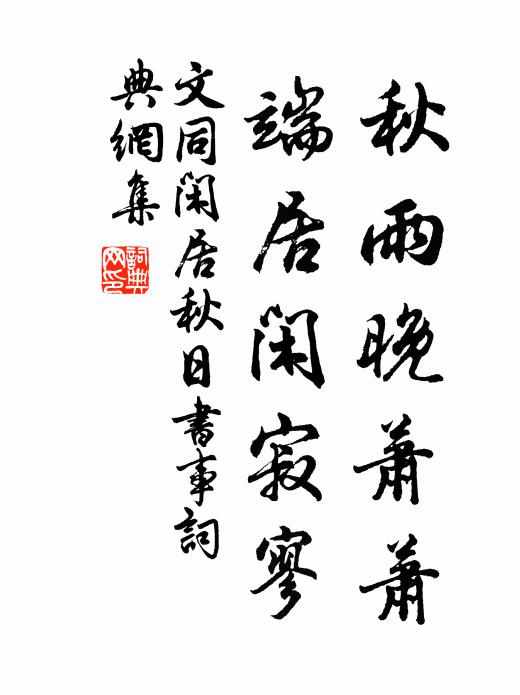 秋雨晚蕭蕭
端居閑寂寥
文同閑居秋日書事詞
典網集
詞典
网印